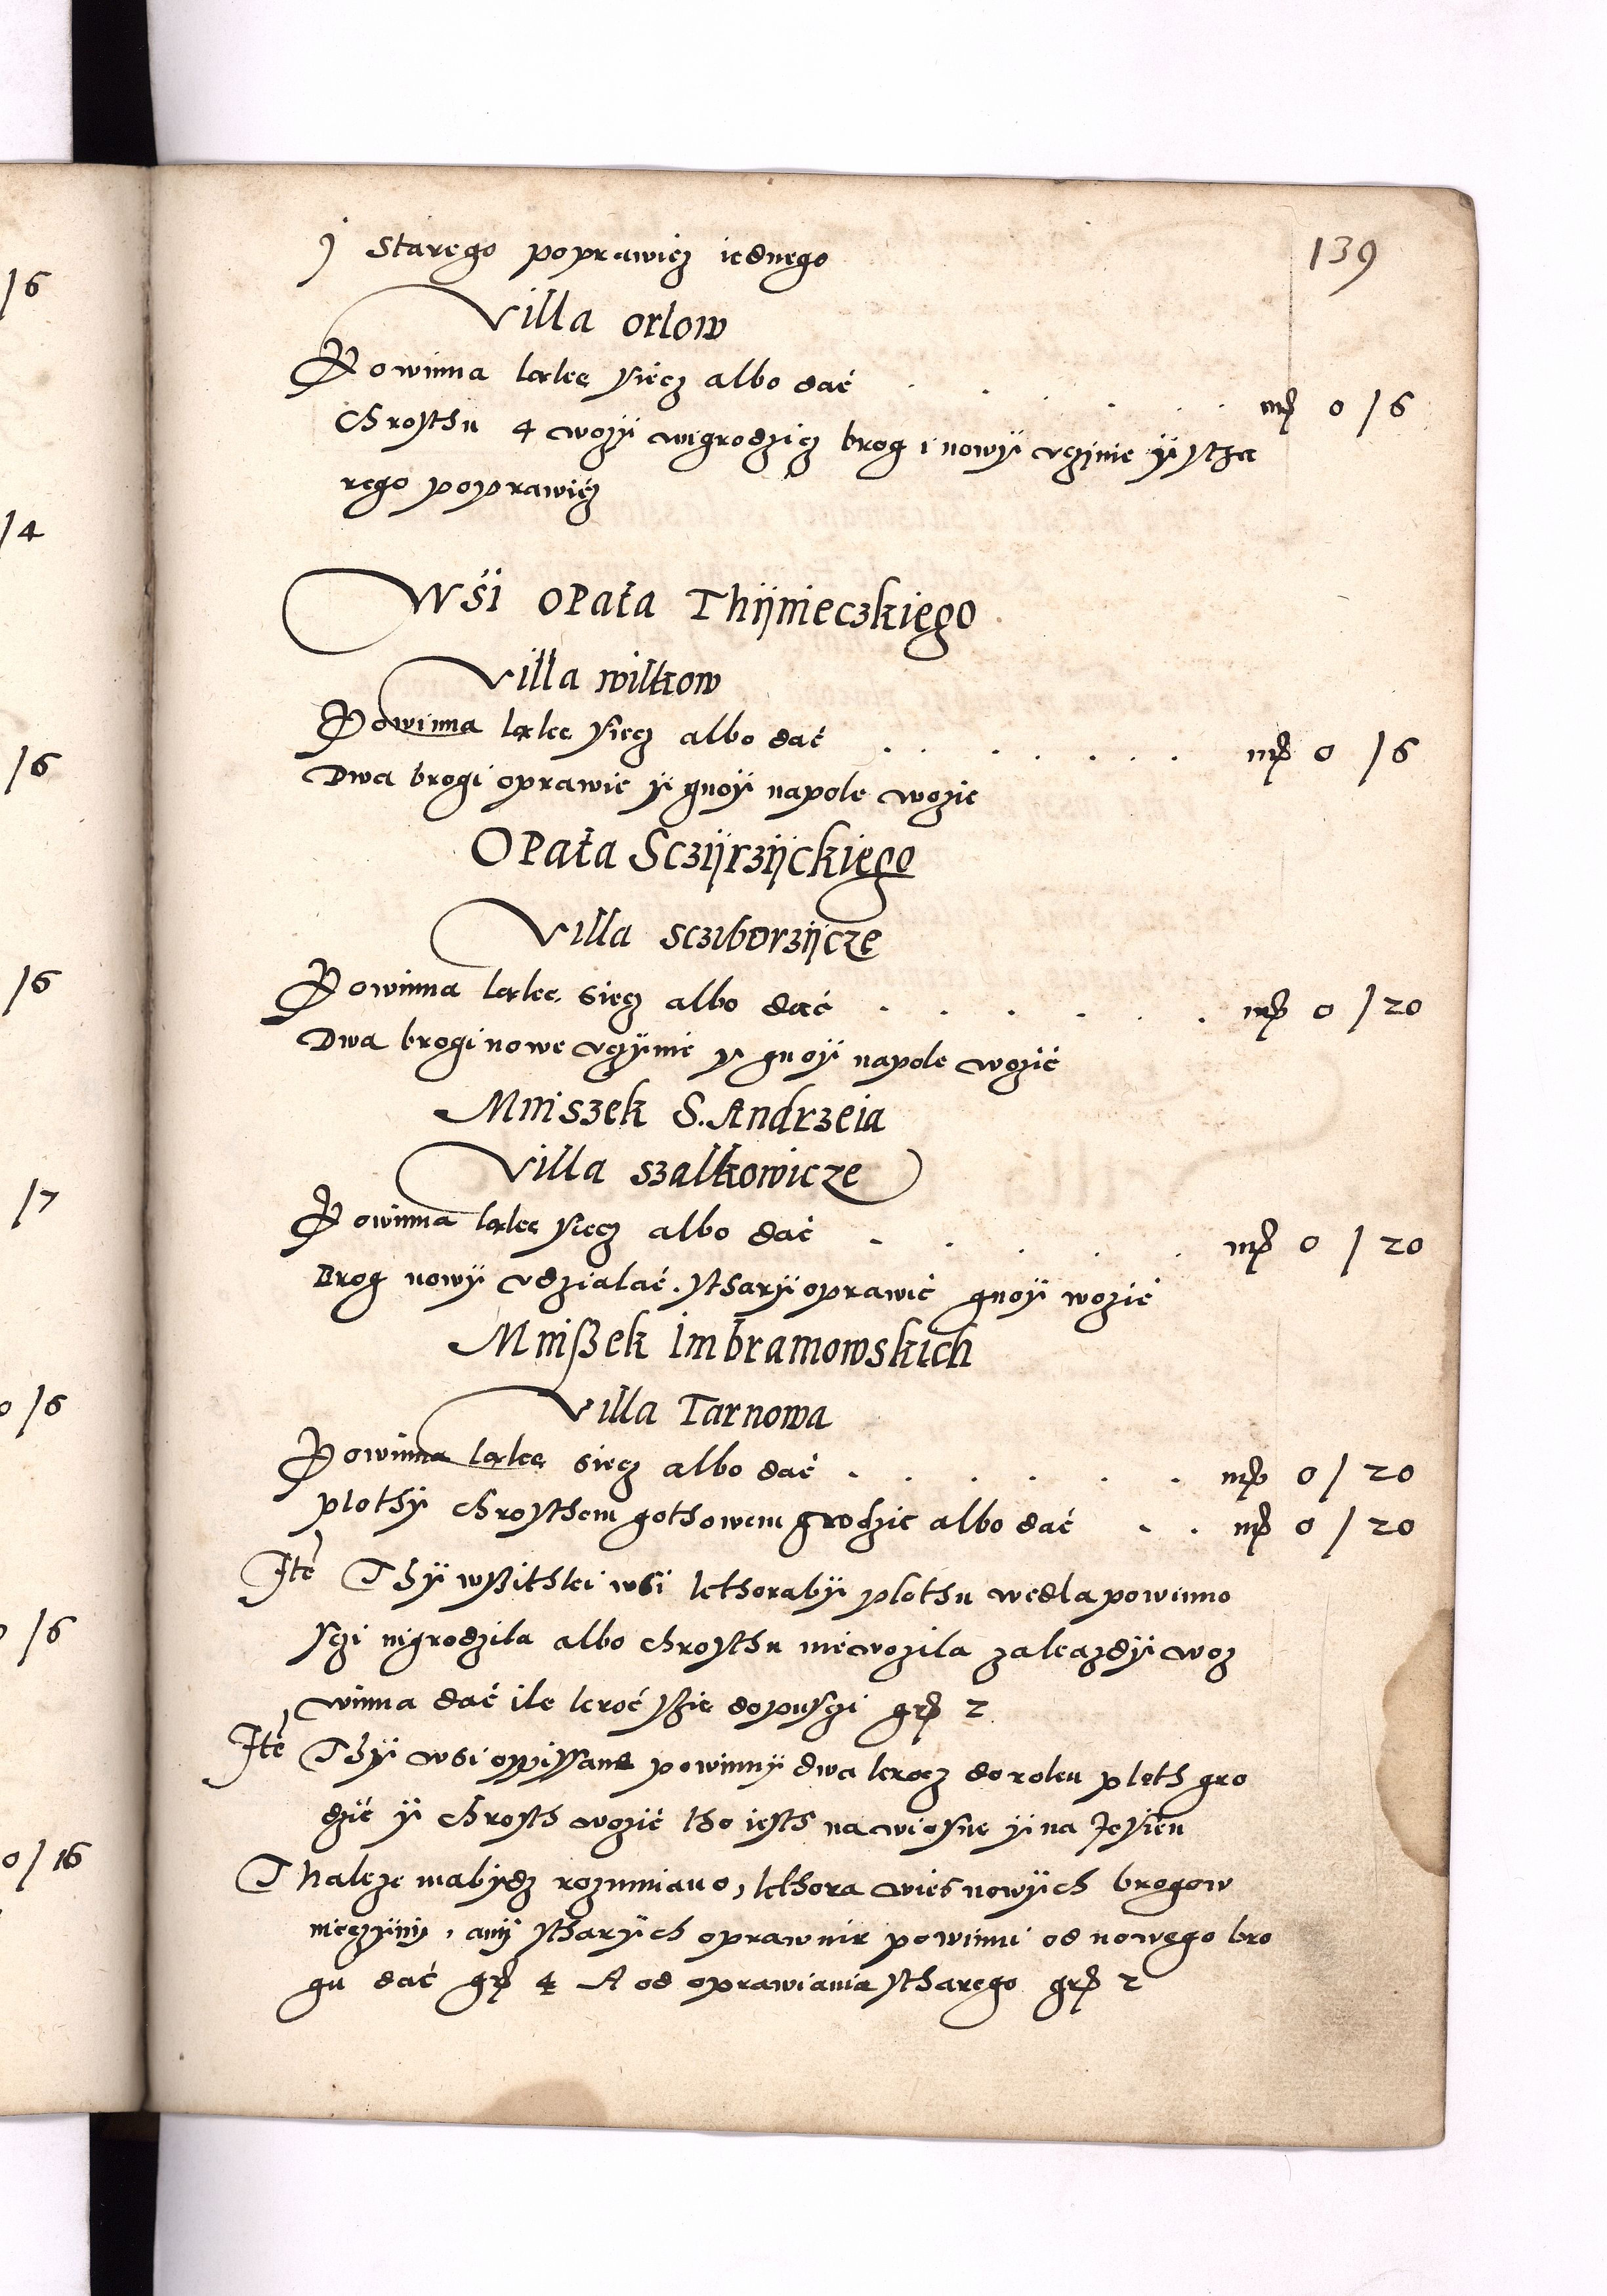 139
J Starego poprawicz iednego
Villa orlow
Powinna ląkę siecz albo dać . . . . . . mрͨ 0 / 6
Chrosthu 4 wozy wigrodzicz brog i nowÿ vczjnie ÿ stha
rego poprawićz
Wśi OPata Thijnieczkiego
Villa wilkow
Powinna ląkę siecz albo dać . . . . . . mрͨ 0 / 6
Dwa brogi oprawic ÿ gnoÿ napole wozic
OPata Sczijrzijckiego
Villa sczιborzijcze
Powinna ląkę siecz albo dać . . . . . . mрͨ 0 / 20
Dwa brogi nowe vczÿnic ÿ gnoÿ napole wozić
Mniszek S. Andrzeia
Villa szalkowicze
Powinna ląkę siecz albo dać . . . . . mрͨ 0 / 20
Brog nowÿ vdzialać. stharÿ oprawić gnoÿ wozić
Mnißek imbramowskich
Villa Tarnowa
Powinna ląkę siecz albo dać . . . . . . mрͨ 0 / 20
plothÿ chrosthem gothowem grodzic albo dać . . mрͨ 0 / 20
Ite Thÿ wßithki wsi kthorabÿ plothu wedla powinno
sczi nigrodzila albo chrosthu niewozila zakazdÿ woz
winna dać ile kroć ßie dopusczi gr 2
Ite Thÿ wsi oppissane powinnÿ dwa krocz doroku ploth gro
dzić ÿ chrosth wozić tho iesth na wiosne ÿ na Jesień
Thakze mabÿdz rozumiano, kthora wies nowÿch brogow
nieczÿni, anÿ stharÿch oprawuie powinni od nowego bro
gu dać gr 4 A od oprawiania stharego gr 2
/6
/4
/6
/6
/7
0 /6
/6
0 / 16